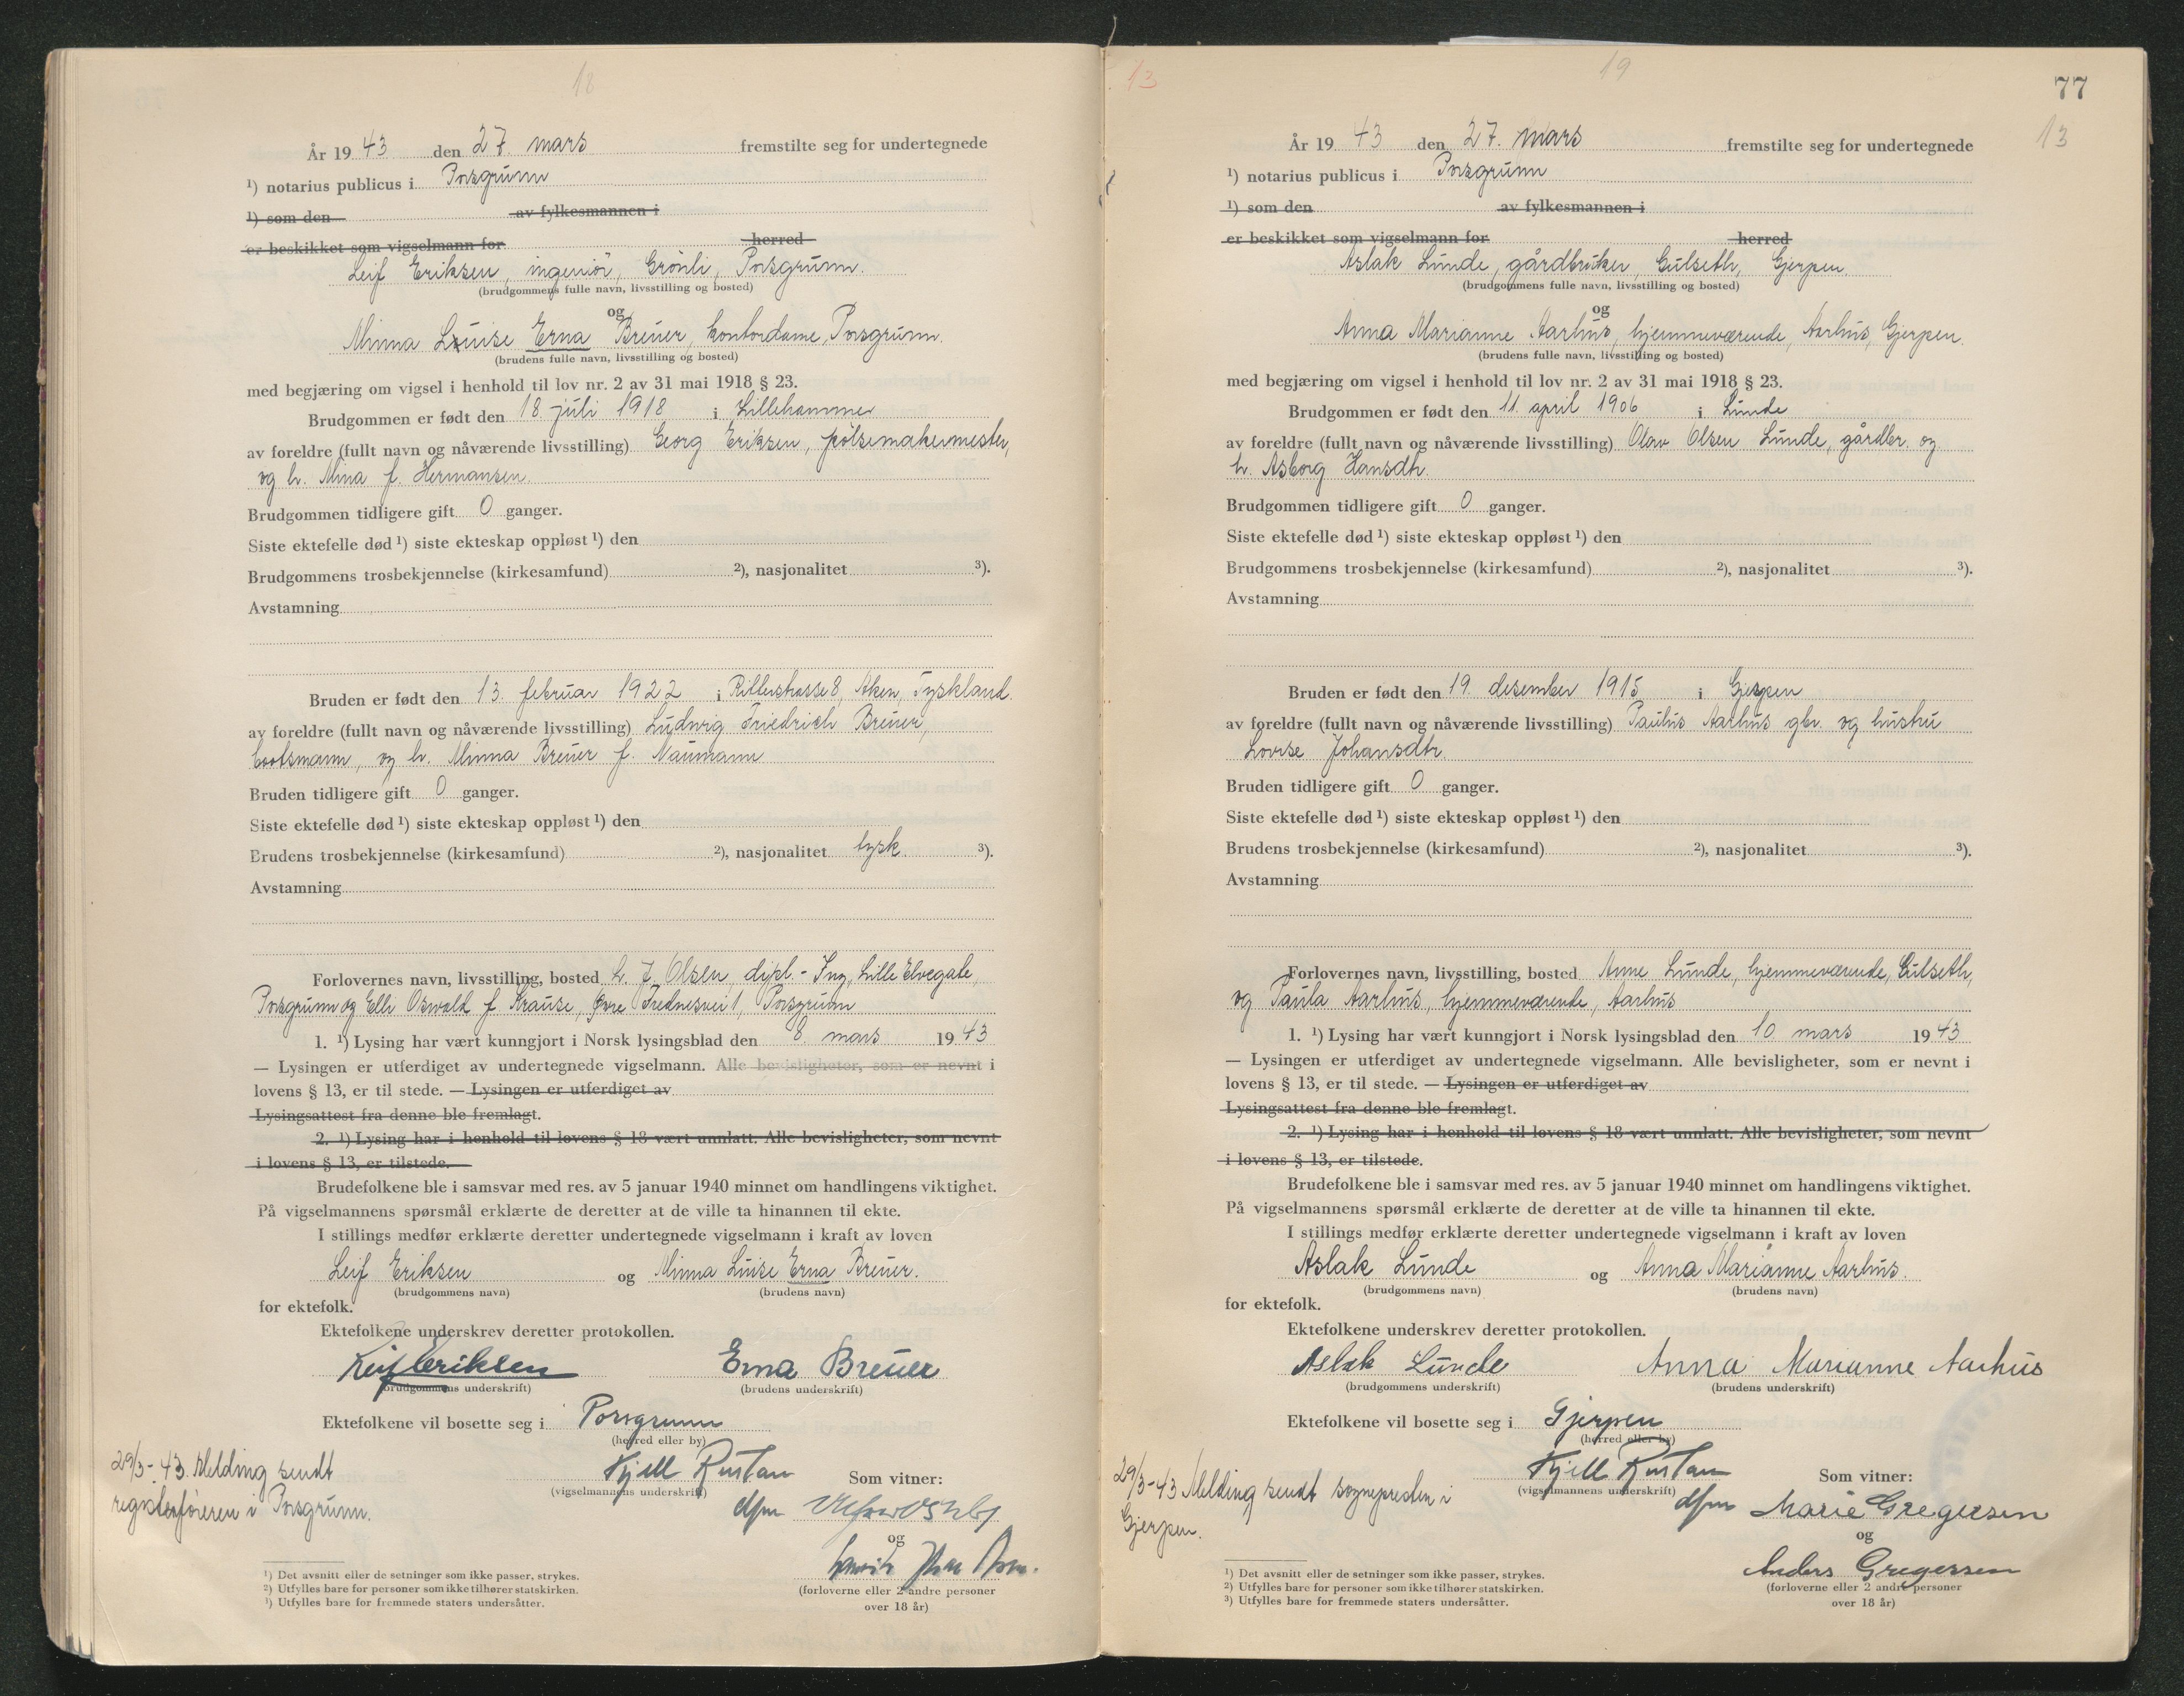 18
År 19 43 den 27. mars fremstilte seg for undertegnede
¹) notarius publicus i Porsgrunn
¹) som den av fylkesmannen i
er beskikket som vigselmann for herred
Leif Eriksen, ingeniör, Grönli, Porsgrunn.
(brudgommens fulle navn, livsstilling og bosted)
og
Minna Luise Erna Breuer, kontordame, Porsgrunn.
(brudens fulle navn, livsstilling og bosted)
med begjæring om vigsel i henhold til lov nr. 2 av 31 mai 1918 § 23.
Brudgommen er født den 18. juli 1918 i Lillehammer
av foreldre (fullt navn og nåværende livsstilling) Georg Eriksen, pölsemakermester,
og h. Mina f. Hermansen.
Brudgommen tidligere gift 0 ganger.
Siste ektefelle død ¹) siste ekteskap oppløst ¹) den
Brudgommens trosbekjennelse (kirkesamfund) ²), nasjonalitet ³).
Avstamning
Bruden er født den 13. februar 1922 i Ritterstrasse 8, Aken, Tyskland.
av foreldre (fullt navn og nåværende livsstilling) Ludwig Friedrich Breuer,
bootsmann, og h. Minna Breuer f. Naumann
Bruden tidligere gift 0 ganger.
Siste ektefelle død ¹) siste ekteskap oppløst ¹) den
Brudens trosbekjennelse (kirkesamfund) ²), nasjonalitet tysk. ³).
Avstamning
Forlovernes navn, livsstilling, bosted L. J. Olsen, dipl.-Ing, Lille Elvegate,
Porsgrunn og Elli Oswald f Krause, Øvre Frednesvei 1, Porsgrunn
1. ¹) Lysing har vært kunngjort i Norsk lysingsblad den 8. mars 19 43
— Lysingen er utferdiget av undertegnede vigselmann. Alle bevisligheter, som er nevnt i
lovens § 13, er til stede. — Lysingen er utferdiget av
Lysingsattest fra denne ble fremlagt.
2. ¹) Lysing har i henhold til lovens § 18 vært unnlatt. Alle bevisligheter, som nevnt
i lovens § 13, er tilstede.
Brudefolkene ble i samsvar med res. av 5 januar 1940 minnet om handlingens viktighet.
På vigselmannens spørsmål erklærte de deretter at de ville ta hinannen til ekte.
I stillings medfør erklærte deretter undertegnede vigselmann i kraft av loven
Leif Eriksen og Minna Luise Erna Breuer.
(brudgommens navn) (brudens navn)
for ektefolk.
Ektefolkene underskrev deretter protokollen.
Leif Eriksen Erna Breuer
(brudgommens underskrift) (brudens underskrift)
Ektefolkene vil bosette seg i Porsgrunn
(herred eller by)
29/3-43. Melding sendt
registerföreren i Porsgrunn.
Kjell Rustan
(vigselmannens underskrift)
dfm
Som vitner:
og
(forloverne eller 2 andre personer
over 18 år)
¹) Det avsnitt eller de setninger som ikke passer, strykes.
²) Utfylles bare for personer som ikke tilhører statskirken.
³) Utfylles bare for fremmede staters undersåtter.
13
19
77
13
År 19 43 den 27. mars fremstilte seg for undertegnede
¹) notarius publicus i Porsgrunn
¹) som den av fylkesmannen i
er beskikket som vigselmann for herred
Aslak Lunde, gårdbruker, Gulseth, Gjerpen.
(brudgommens fulle navn, livsstilling og bosted)
og
Anna Marianne Aarhus, hjemmeværende, Aarhus, Gjerpen.
(brudens fulle navn, livsstilling og bosted)
med begjæring om vigsel i henhold til lov nr. 2 av 31 mai 1918 § 23.
Brudgommen er født den 11. april 1906 i Lunde
av foreldre (fullt navn og nåværende livsstilling) Olav Olsen Lunde, gårdbr. og
h. Asborg Hansdtr.
Brudgommen tidligere gift 0 ganger.
Siste ektefelle død ¹) siste ekteskap oppløst ¹) den
Brudgommens trosbekjennelse (kirkesamfund) ²), nasjonalitet ³).
Avstamning
Bruden er født den 19. desember 1915 i Gjerpen
av foreldre (fullt navn og nåværende livsstilling) Paulus Aarhus gbr. og hustru
Lovise Johansdtr.
Bruden tidligere gift 0 ganger.
Siste ektefelle død ¹) siste ekteskap oppløst ¹) den
Brudens trosbekjennelse (kirkesamfund) ²), nasjonalitet ³).
Avstamning
Forlovernes navn, livsstilling, bosted Anne Lunde, hjemmeværende, Gulseth,
og Paula Aarhus, hjemmeværende, Aarhus
1. ¹) Lysing har vært kunngjort i Norsk lysingsblad den 10 mars 19 43
— Lysingen er utferdiget av undertegnede vigselmann. Alle bevisligheter, som er nevnt i
lovens § 13, er til stede. — Lysingen er utferdiget av
Lysingsattest fra denne ble fremlagt.
2. ¹) Lysing har i henhold til lovens § 18 vært unnlatt. Alle bevisligheter, som nevnt
i lovens § 13, er tilstede.
Brudefolkene ble i samsvar med res. av 5 januar 1940 minnet om handlingens viktighet.
På vigselmannens spørsmål erklærte de deretter at de ville ta hinannen til ekte.
I stillings medfør erklærte deretter undertegnede vigselmann i kraft av loven
Aslak Lunde og Anna Marianne Aarhus.
(brudgommens navn) (brudens navn)
for ektefolk.
Ektefolkene underskrev deretter protokollen.
Aslak Lunde Anna Marianne Aarhus
(brudgommens underskrift) (brudens underskrift)
Ektefolkene vil bosette seg i Gjerpen
(herred eller by)
29/3-43 Melding sendt sognepresten i
Gjerpen.
Kjell Rustan
(vigselmannens underskrift)
dfm
Som vitner:
Marie Gregersen
og
Anders Gregersen
(forloverne eller 2 andre personer
over 18 år)
¹) Det avsnitt eller de setninger som ikke passer, strykes.
²) Utfylles bare for personer som ikke tilhører statskirken.
³) Utfylles bare for fremmede staters undersåtter.